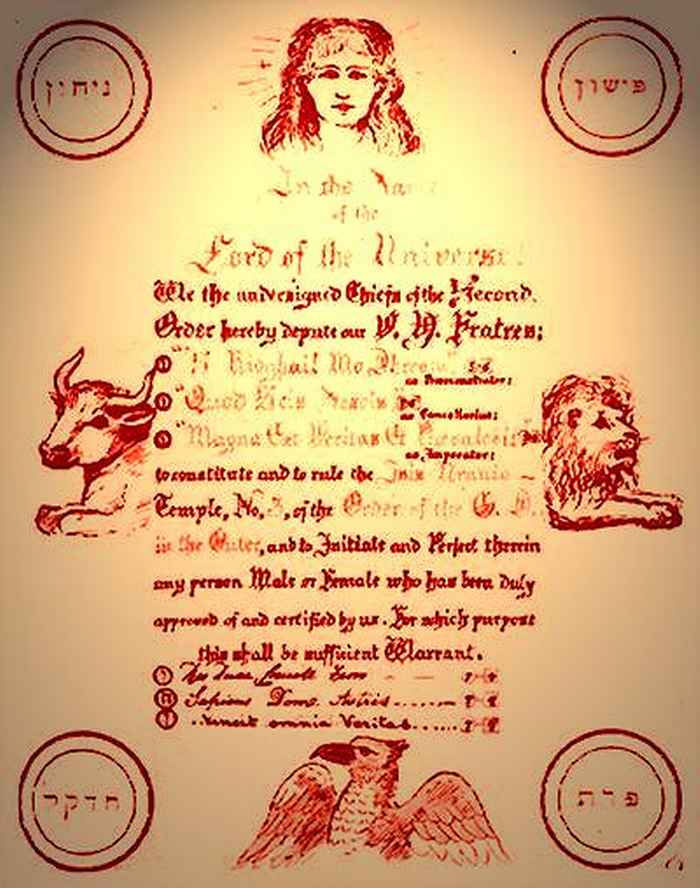 ניחון
פישון
In the Name
of the
Lord of the Universe!
We the undersigned Chiefs of the Second
Order hereby depute our V. H. Fratres:
"'S Rioghail Mo Dhream"
as Praemonstrator:
"Quod Scis Nescis"
as Cancellarius:
"Magna Est Veritas Et Praevalebit"
as Imperator:
to constitute and to rule the Isis Urania
Temple, No. 3, of the Order of the G. D.
in the Outer, and to Initiate and Perfect therein
any person Male or Female who has been duly
approved of and certified by us. For which purpose
this shall be sufficient Warrant.
Deo Duce Comite Ferro
Sapiens Dom. Astris
Vincit omnia Veritas
חדקר
פרת